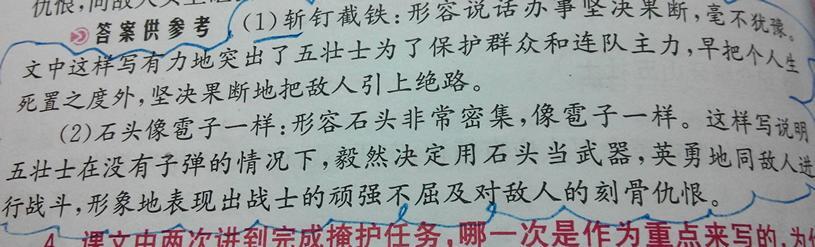 仇恨,
答案供参考 (1)斩钉截铁:形容说话办事坚决果断,毫不犹豫。
文中这样写有力地突出了五壮士为了保护群众和连队主力,早把个人生
死置之度外,坚决果断地把敌人引上绝路。
(2)石头像雹子一样:形容石头非常密集,像雹子一样。这样写说明
五壮士在没有子弹的情况下,毅然决定用石头当武器,英勇地同敌人进
行战斗,形象地表现出战士的顽强不屈及对敌人的刻骨仇恨。
4.课文中两次讲到完成掩护任务,哪一次是作为重点来写的,为什